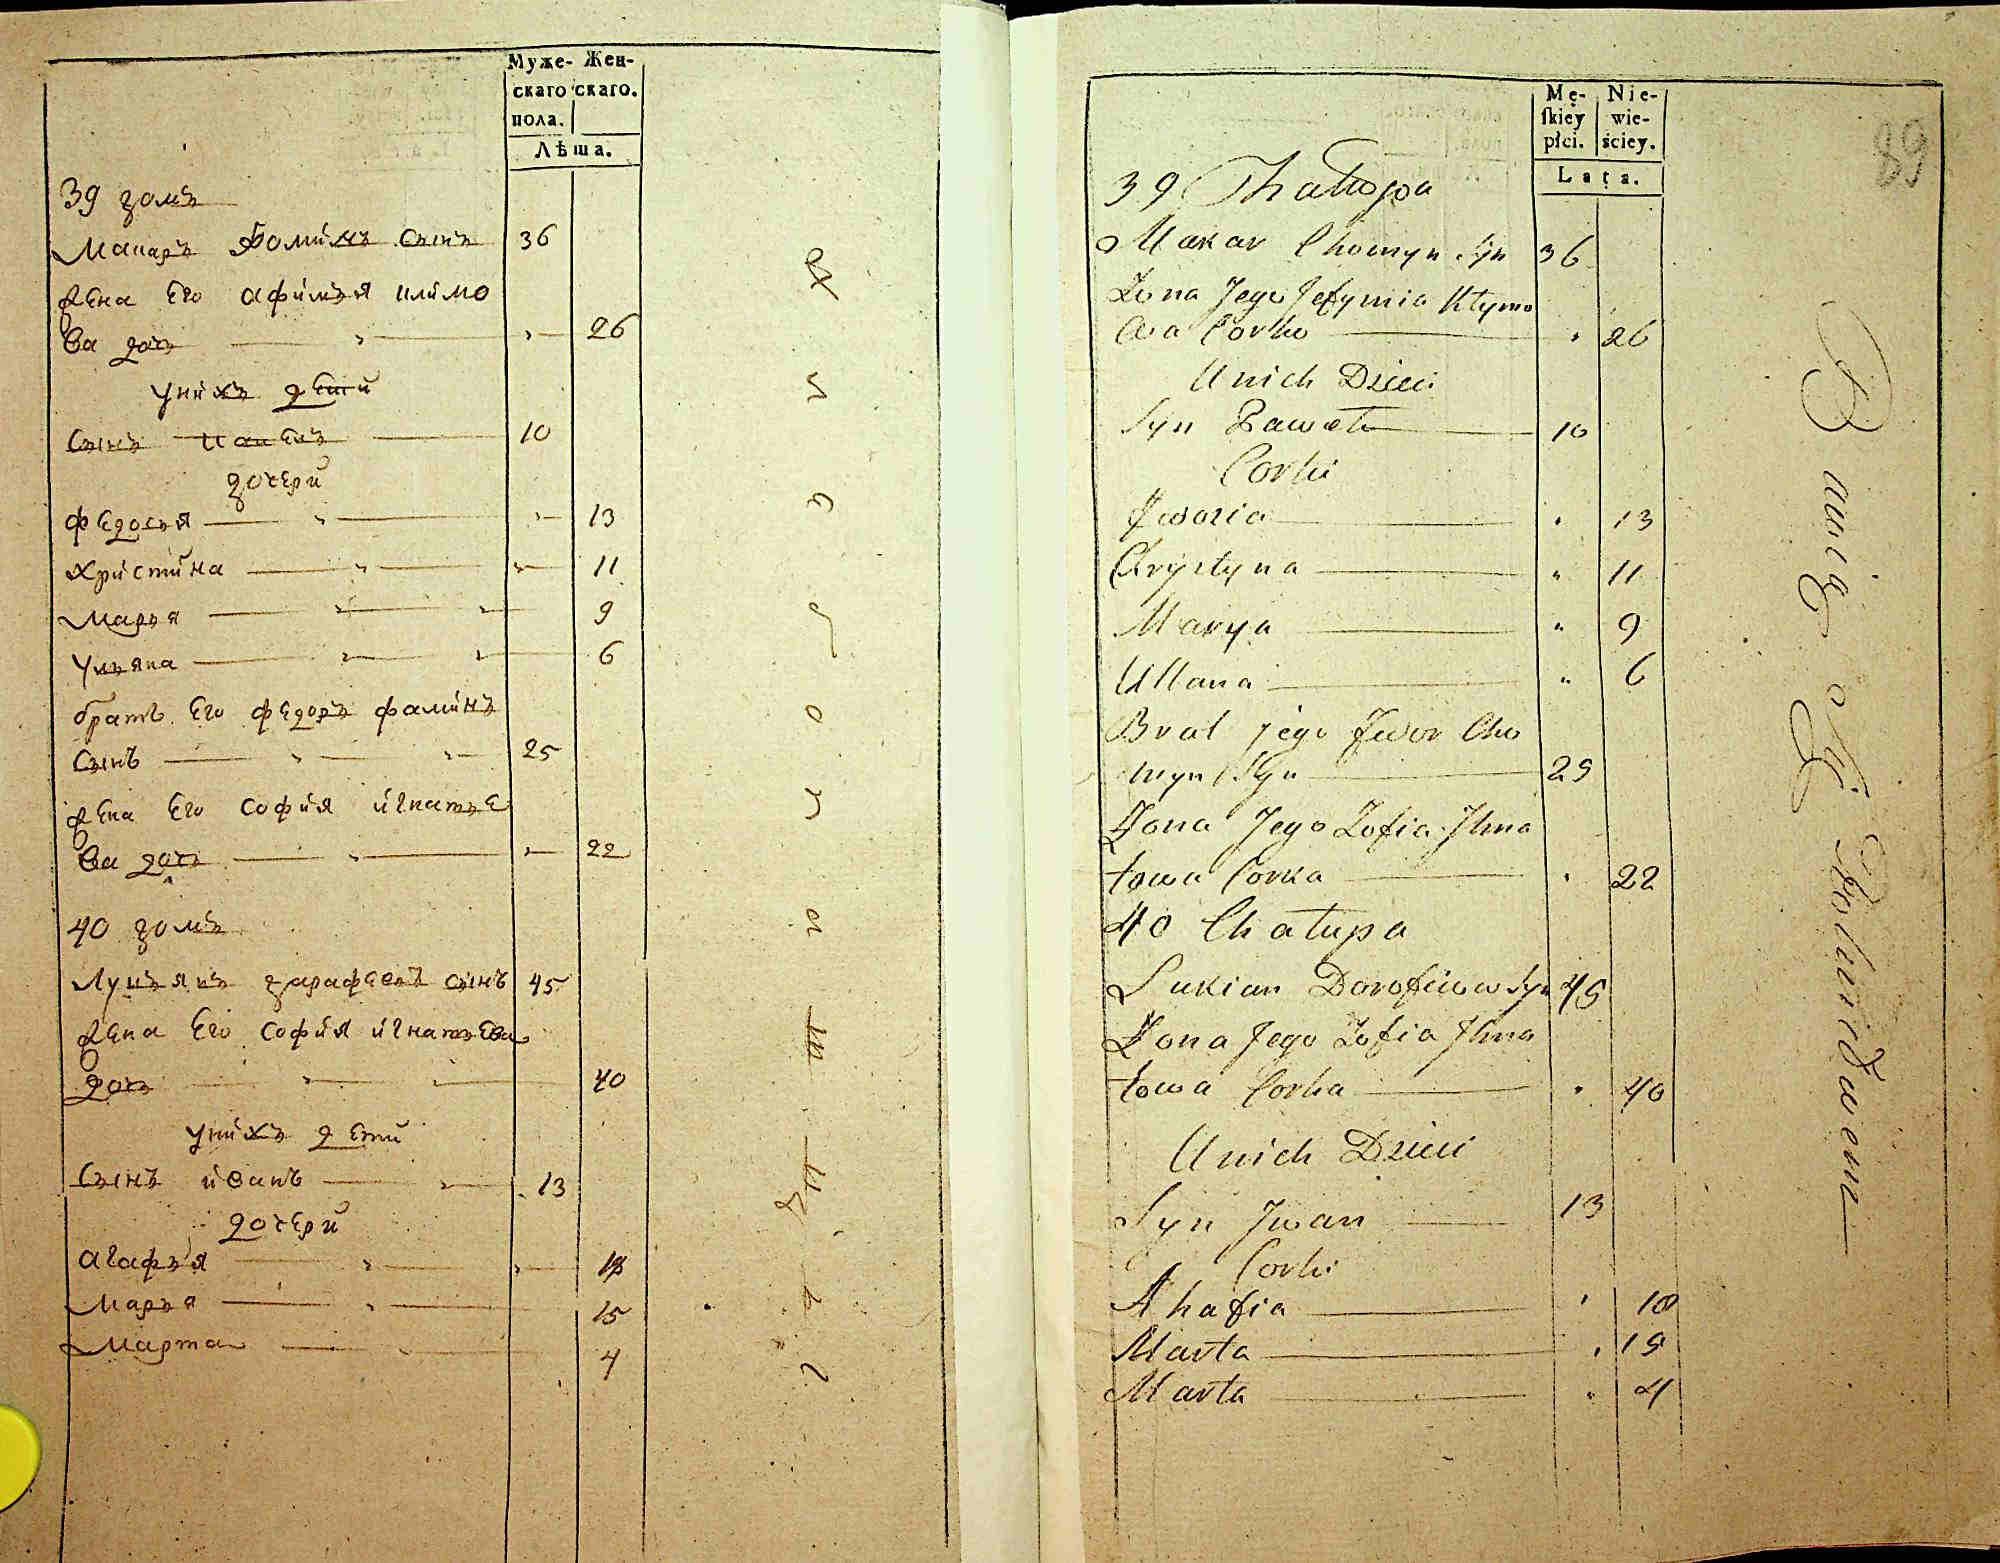 Муже- Жен-
скаго скаго.
пола.
Лѣта.
39 домъ
Макаръ Фоминъ сынъ 36
жена Его афимья климо
ва дочь 26
унихъ дети
Сынъ павелъ 10
дочери
федосья 13
христина 11
Марья 9
ульяна 6
братъ Его федоръ фаминъ
Сынъ 25
жена Его софия игнатье
ва дочь 22
40 домъ
Лукьянъ дарафеевъ сынъ 45
жена Его софия игнатьева
дочь 40
унихъ дети
Сынъ иванъ 13
дочери
агафья 18
Марья 15
Марта 4
Mę- Nie-
skiey wie-
płci. ściey.
Lata.
89
39 Chałupa
Makar Chomyn Syn 36
Zona Jego Jefymia Klymo
wa Corka 26
Unich Dzieci
Syn Paweł 10
Corki
Fwozia 13
Chrystyna 11
Marya 9
Ullana 6
Brat jego Fwor Cho
myn Syn 25
Zona Jego Zofia Ihna
towa Corka 22
40 Chałupa
Lukian Dorofiiow Syn 45
Zona Jego Zofia Ihna
towa Corka 40
Unich Dzieci
Syn Jwan 13
Corki
Ahafia 18
Marta 15
Marta 4